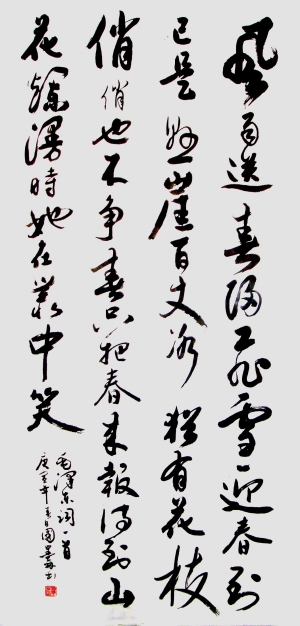 風雨送春归飛雪迎春到
已是悬崖百丈冰猶有花枝
俏俏也不争春只把春来報待到山
花爛漫時她在叢中笑
毛澤东词一首
庚寅年春